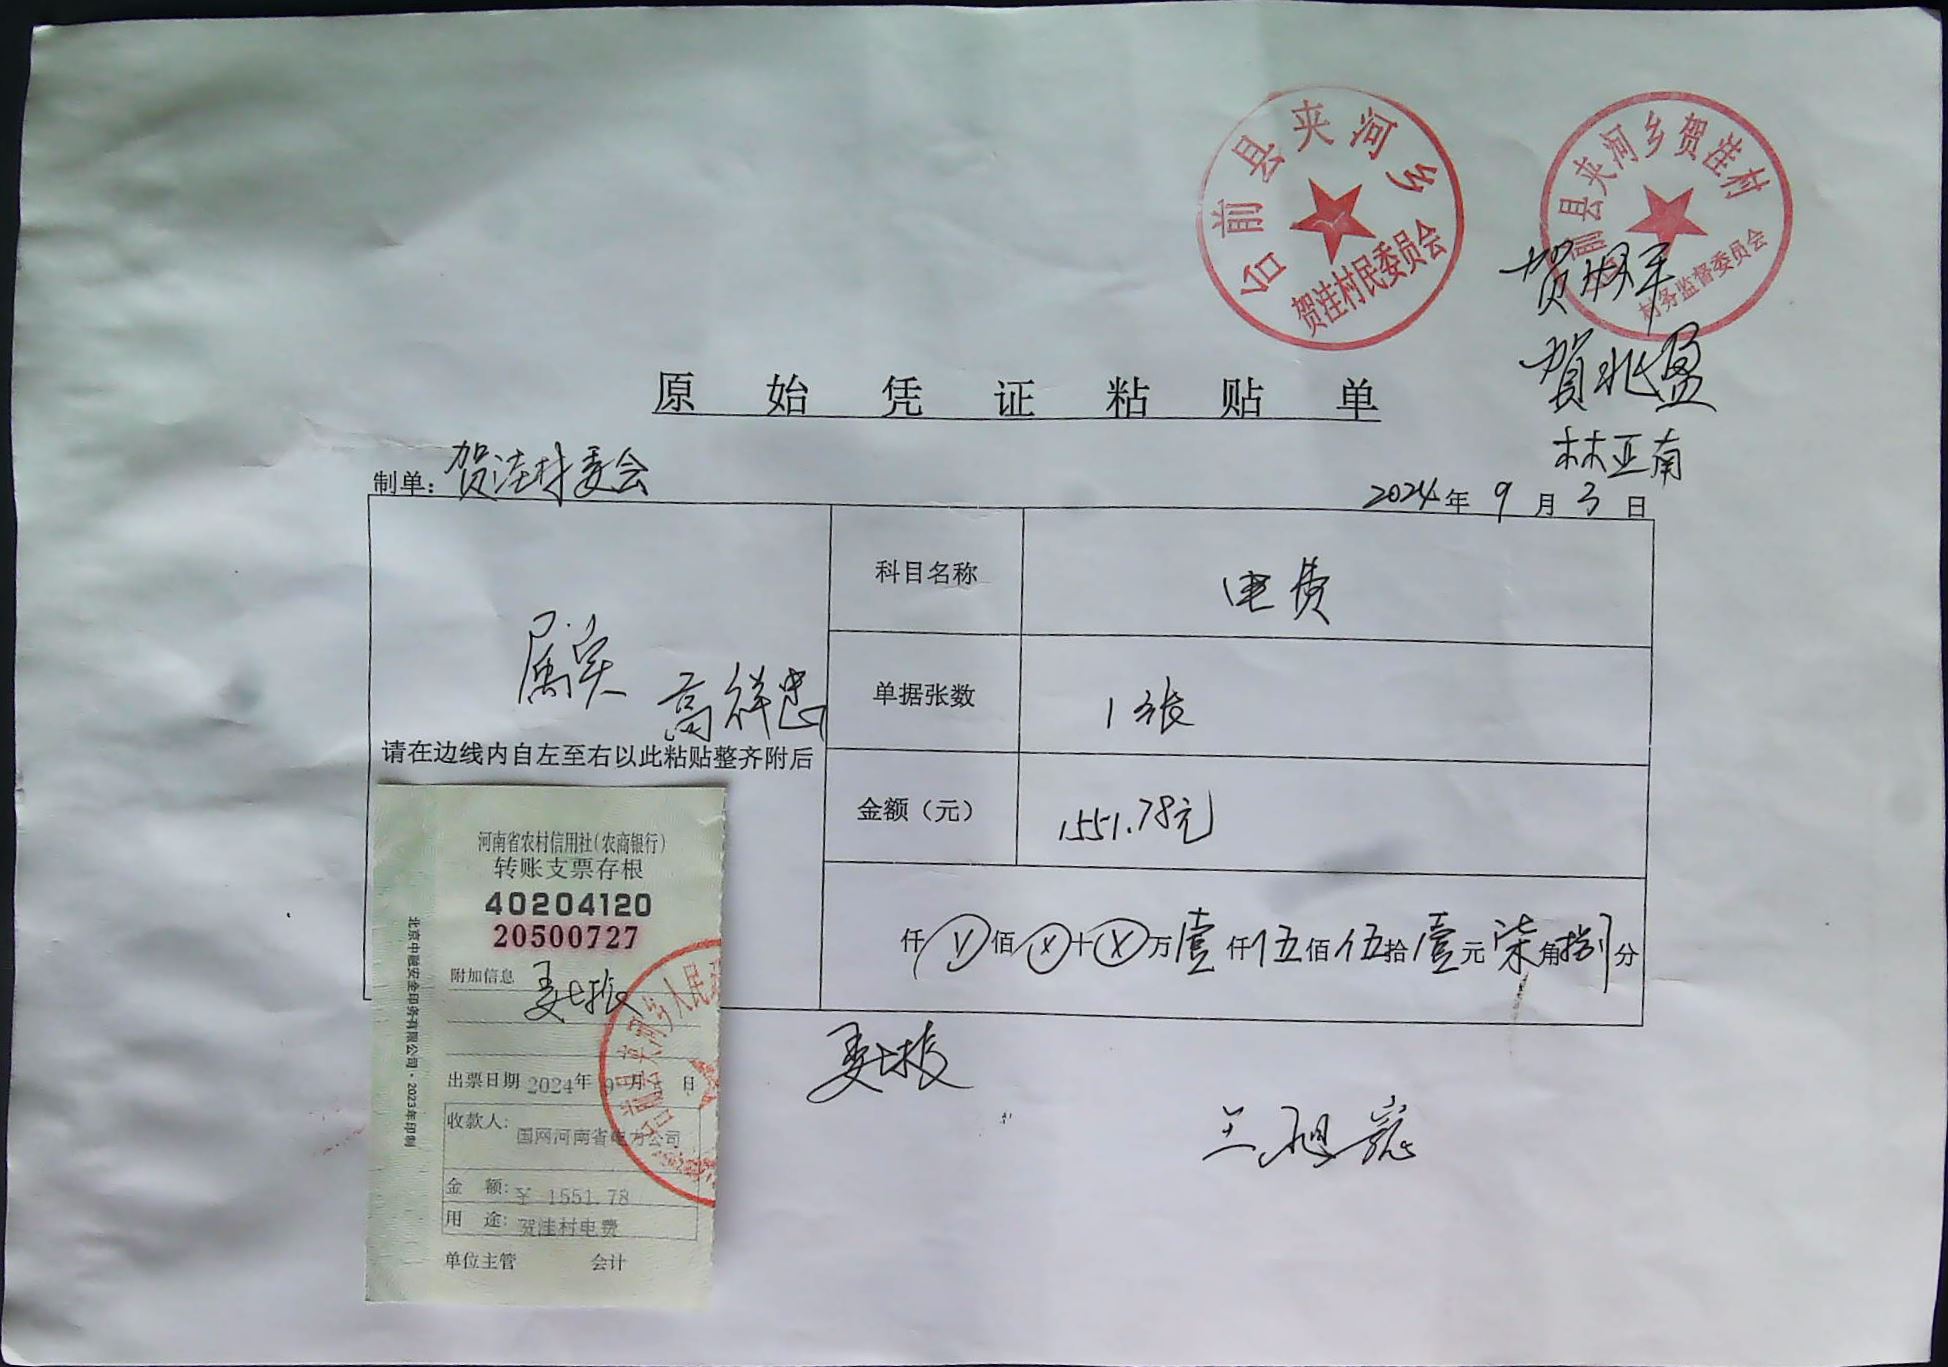 台前县夹河乡
贺洼村民委员会
台前县夹河乡贺洼村
村务监督委员会
贺兆盈
林亚南
原始凭证粘贴单
制单：贺洼村委会
2024年9月3日
科目名称 电费
属实
高祥忠
单据张数 1张
请在边线内自左至右以此粘贴整齐附后
金额（元） 1551.78元
仟ⓧ佰ⓧ十ⓧ万壹仟伍佰伍拾壹元柒角捌分
河南省农村信用社(农商银行)
转账支票存根
40204120
20500727
附加信息
出票日期 2024年 9 月 日
收款人：国网河南省电力公司
金 额：¥ 1551.78
用 途：贺洼村电费
单位主管 会计
北京中融安全印务有限公司·2023年印制
台前县夹河乡人民